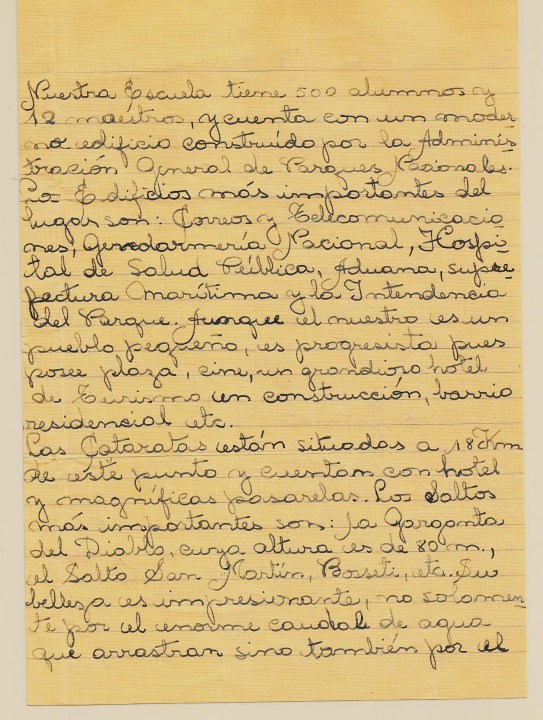 Nuestra Escuela tiene 500 alumnos y
12 maéstros, y cuenta con un moder-
no edificio construído por la Adminis-
tración General de Parques Nacionales.
Los Edificios más importantes del
lugar son: Correos y Telecomunicacio-
nes, Gendarmería Nacional, Hospi-
tal de Salud Pública, Aduana, supre-
fectura Marítima y la Intendencia
del Parque. Aunque el nuestro es un
pueblo pequeño, es progresista pues
posee plaza, cine, un grandioso hotel
de Turismo en construcción, barrio
residencial etc.
Las Cataratas están situadas a 18 Km
de este punto y cuentan con hotel
y magníficas pasarelas. Los Saltos
más importantes son: la Garganta
del Diablo, cuya altura es de 80 m.,
el Salto San Martín, Bosseti, etc. Su
belleza es impresionante, no sólamen-
te por el enorme caudal de agua
que arrastran sino también por el